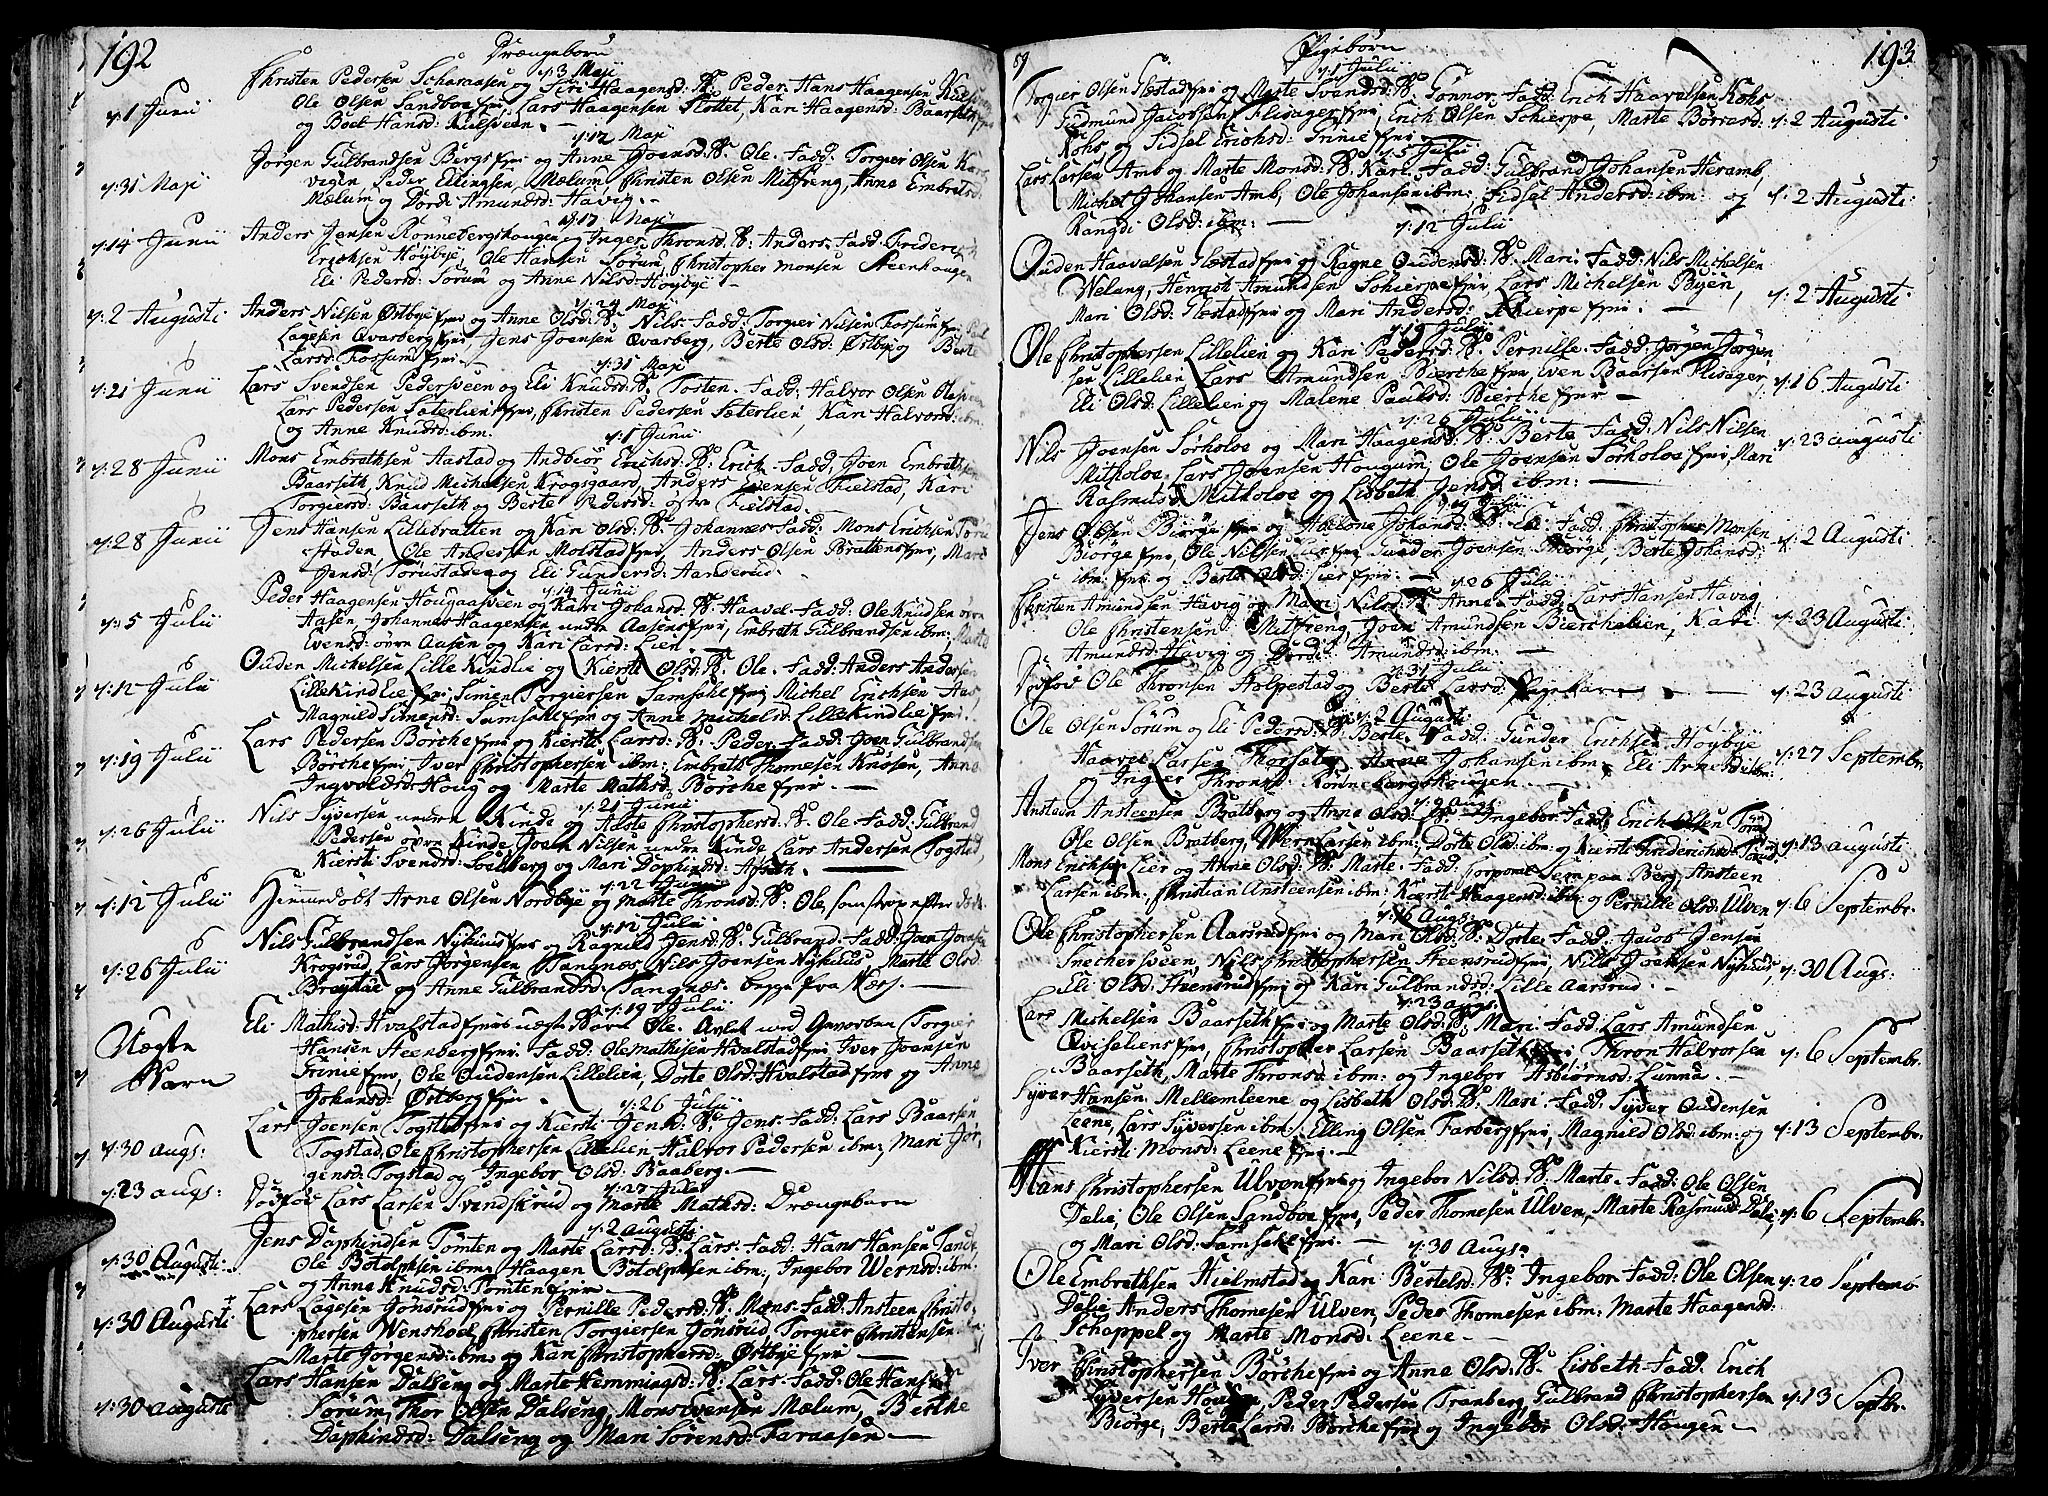 192
Drængebørn
d. 3 Maji
Christen Pedersen Scharaasen og Siri Haagensd: B: Peder. Hans Haagensen
d. 1 Junii
Ole Olsen Sandboe Lars Haagensen Slottet, Kari Haagensd: Baarseth
og Boel Hansd: Kulsveen. —
d. 12 Maji
Jørgen Gulbrandsen Bergs ejer og Anne Joensd: B: Ole. Fadd: Torgier Olsen
d. 31 Maji
vigen, Peder Ellingsen, Mælum, Christen Olsen Mitfreng, Anne Embretsd:
Mælum og Dordi Amundsd: Havig. —
d. 17 Maji
d. 14 Junii
Anders Jensen Rønnebergshaugen og Inger Thronsd: B: Anders. Fadd:
Ericksen Høybye, Ole Hansen Sørum, Christopher Monsen Steenhaugen
Eli Pedersd: Sørum og Anne Nilsd: Høybye —
d. 24 Maji
d. 2 Augusti
Anders Nilsen Østbye ejer og Anne Olsd: B: Nils. Fadd: Torgier Nilsen Fossum
Lagesen Qvarberg ejer, Jens Joensen Qvarberg, Berte Olsd: Østby og Berte
Larsd: Fossum ejer. —
d. 31 Maji
d. 21 Junii
Lars Svendsen Pedersveen og Eli Knudsd: B: Torsten. Fadd: Halvor Olsen
Lars Pedersen Sæterlien ejer, Christen Pedersen Sæterlien, Kari Halvorsd:
og Anne Knudsd: ibm.
d. 1 Junii
d. 28 Junii
Mons Embrethsen Aastad og Andbior Erichsd: B: Erich. Fadd: Joen Embreths
Baarseth, Knud Michelsen Krogsgaard, Anders Evensen Fielstad, Kari
Torgiersd: Baarseth og Berte Pedersd: Fielstad.
d. 28 Junii
Jens Hansen Lillebratten og Kari Olsd: B: Johannes. Fadd: Mons Erichsen
Haden, Ole Andersen Molstad ejer, Anders Olsen Brattens ejer, Mari
Jensd: Torustad og Eli Gundersd: Aanderud.
d. 14 Junii
Peder Haagensen Hougaasveen og Kari Johansd: B: Haavel. Fadd: Ole Knudsen
d. 5 Julii
Aasen, Johannes Haagensen nedre Aasens ejer, Embreth Gulbrandsen ibm; Marte
Evensd: øvre Aasen og Kari Larsd: Lien. —
d. 12 Julii
Ouden Michelsen Lille Kindlie og Kiersti Olsd: B: Ole. Fadd: Anders Andersen
Lille Kindlie ejer, Simen Torgiersen Samsahl ejer, Michel Erichsen
Magnild Simensd: Samsahl ejer og Anne Michelsd: Lille Kindlie ejer.
d. 19 Julii
Lars Pedersen Børche ejer og Kiersti Larsd: B: Peder. Fadd: Joen Gulbrands
Børche ejer, Iver Christophersen ibm; Embreth Thomesen Knosen, Anne
Ingvoldsd: Houg og Marte Mathisd: Børche ejer. —
d. 21 Junii
d. 26 Julii
Nils Syversen nedre Kinde og Aaste Christophersd: B: Ole. Fadd: Gulbrand
Pedersen øvre Kinde, Joen Nilsen nedre Kinde, Lars Andersen Togstad,
Kiersti Svendsd: Soelberg og Mari Daphindsd: —
d. 22 Junii
d. 12 Julii
Hiemmedøbt Arne Olsen Nordbye og Marte Thronsd: B: Ole, som strax efter døde.
d. 12 Julii
d. 26 Julii
Nils Gulbrandsen Nyhuus ejer og Ragnild Jensd: B: Gulbrand. Fadd: Joen Joensen
Krogsrud, Lars Jørgensen Tangnæs, Nils Joensen Nyhuus, Marte Olsd:
og Anne Gulbrandsd: Tangnæs begge fra Næs. —
d. 19 Julii
Uægte
Barn
Eli Mathisd: Hvalstad ejers uægte Barn Ole. Avlet ved Torgier
Hansen Steenberg ejer. Fadd: Ole Mathisen Hvalstad ejer Iver Joensen
Trinie ejer, Ole Oudensen Lillelien, Dorte Olsd: Hvalstad ejer og Anne
Johansd: Østberg ejer.
d. 26 Julii
d. 30 Augs:
Lars Joensen Togstad ejer og Kiersti Jensd: B: Jens. Fadd: Lars Baarsen
Togstad, Ole Christophersen Lillelien, Halvor Pedersen ibm; Mari Jør,
gensd: Togstad og Ingebor Olsd: Baaberg. —
d. 27 Julii
d. 23 Augs:
Dødfød Lars Larsen Svendskrud og Marte Mathisd: Drængebarn
d. 2 Augusti
d. 30 Augusti
Jens Daphindsen Tømten og Marte Larsd: B: Lars. Fadd: Hans Hansen
Ole Botolphsen ibm; Haagen Botolphsen ibm; Ingebor Wernsd: ibm:
og Anne Knudsd: Tømten ejer. —
d. 30 Augusti
Lars Lagesen Gønsrud ejer og Pernille Pedersd: B: Mons. Fadd: Ansteen Christo,
phersen Wenshoel Christen Torgiersen Gønsrud, Torgier Christensen
Marte Jørgensd: ibm, og Kari Christophersd: Østbye ejer —
d. 30 Augusti
Lars Hansen Dalseng og Marte Hemmingsd: B: Lars. Fadd: Ole Hansen
Sørum, Thor Olsen Dalseng, Mons Evensen Mælum, Berthe
Daphindsd: Dalseng og Mari Sørensd: Faraasen —
193
Pigebørn
d. 1 Julii
Torgier Olsen Flæstad ejer og Marte Svendsd: B: Gonnor. Fadd: Erich Haavelsen Kohs
Gudmund Jacobsen Flisager ejer, Erich Olsen Schierpe, Marte Børresd:
d. 2 Augusti
Kohs og Sidsel Erichsd: Trinie ejer —
d. 5 Julii
Lars Larsen Amb og Marte Monsd: B: Kari. Fadd: Gulbrand Johansen Heramb,
Michel Johansen Amb, Ole Johansen ibm; Sidsel Andersd: ibm: og
d. 2 Augusti
Rangdi Olsd: ibm: —
d. 12 Julii
Ouden Haavelsen Flæstad ejer og Ragne Oudensd: B: Mari. Fadd: Nils Michelsen
Welang, Henrich Amundsen Schierpe ejer, Lars Michelsen Byen,
d. 2 Augusti
Mari Olsd: Flæstad ejer og Mari Andersd: Schierpe ejer. —
d. 19 Julii
Ole Christophersen Lillelien og Kari Pedersd: B: Pernille. Fadd: Jørgen Jørgen
sen Lillelien, Lars Amundsen Bierche ejer, Even Baarsen Flisager,
d. 16 Augusti
Eli Olsd: Lillelien og Malene Paulsd: Bierche ejer —
d. 26 Julii
Nils Joensen Sørholoe og Mari Haagensd: B: Berte. Fadd: Nils Nilsen
d. 23 Augusti
Mitholoe, Lars Joensen Hougum, Ole Joensen Sørholoe ejer, Mari
Rasmusd: Mitholoe og Lisbeth Jensd: ibm: —
d. 19 Julii
Jens Olsen Biørge ejer og Abelone Johansd: B: Eli. Fadd: Christopher Monsen
Biørge ejer, Ole Nilsen Lier ejer, Gunder Joensen Biørge, Berte Johansd:
d. 2 Augusti
ibm: ejer og Berte Olsd: Lier ejer. —
d. 26 Julii
Christen Amundsen Havig og Mari Nilsd: B: Anne. Fadd: Lars Hansen Havig
Ole Christensen Mitfreng, Joen Amundsen Bierchelien, Kari
d. 23 Augusti
Amundsd: Havig og Dordi Amundsd: ibm: —
d. 31 Julii
Dødfød Ole Thronsen Holpestad og Berte Larsd: Pigebarn. —
d. 23 Augusti
d. 2 Augusti
Ole Olsen Sørum og Eli Pedersd: B: Berte. Fadd: Gunder Erichsen Høybye
Haavel Larsen Thorsæter, Arne Johansen ibm: Eli Arnesd: ibm:
d. 27 Septembr.
og Inger Thronsd: Rønnebergshougen. —
d. 2 Augs:
Anstein Ansteensen Bratberg og Anne Olsd: B: Ingebor. Fadd: Erich Olsen
Ole Olsen Bratberg, Wern Larsen ibm: Dorte Olsd: ibm: og Kiersti Friderichsd:
d. 13 Augusti
Mons Erichsen Lier og Anne Olsd: B: Marte. Fadd: Corporal Berg, Ansteen
Larsen ibm: Christian Ansteensen ibm: Kiersti Haagensd: ibm: og Pernille Olsd: Ulven
d. 6 Septembr.
d. 16 Augs:
Ole Christophersen Aarsrud ejer og Mari Olsd: B: Dorte. Fadd: Jacob Jensen
Snechersveen, Nils Christophersen Heensrud ejer, Nils Joensen Nyhuus,
d. 30 Augs:
Eli Olsd: Heensrud ejer og Kari Gulbrandsd: Lille Aarsrud. —
d. 23 Augs:
Lars Michelsen Baarseth ejer og Marte Olsd: B: Mari. Fadd: Lars Amundsen
Qviseliens ejer, Christopher Larsen Baarseth ejer, Thron Halvorsen
d. 6 Septembr.
Baarseth, Marte Thronsd: ibm: og Ingebor Asbiørnsd: Lunna. —
Syver Hansen Mellemleene og Lisbeth Olsd: B: Mari. Fadd: Syver Oudensen
Leene, Lars Syversen ibm: Elling Olsen Farberg ejer, Magnild Olsd: ibm: og
d. 13 Septembr.
Kiersti Monsd: Leene ejer. —
Hans Christophersen Ulven ejer og Ingebor Nilsd: B: Marte. Fadd: Ole Olsen
Dalie, Ole Olsen Sandboe ejer, Peder Thomesen Ulven, Marte Rasmusd: Dalie,
d. 6 Septembr.
og Mari Olsd: Samsahl ejer. —
d. 30 Augs:
Ole Embrethsen Hielmstad og Kari Bertelsd: B: Ingebor. Fadd: Ole Olsen
d. 20 Septembr
Dalie, Anders Thomesen Ulven, Peder Thomesen ibm: Marte Haagensd:
Schappel og Marte Monsd: Leene —
Iver Christophersen Børche ejer og Anne Olsd: B: Lisbeth. Fadd: Erich
Syversen Hougen, Peder Pedersen Tranberg, Gulbrand Christophersen
d. 13 Septbr.
Biørge, Berte Larsd: Børche ejer og Ingebor Olsd: Hougen —